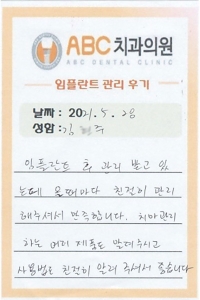 ABC 치과의원
ABC DENTAL CLINIC
임플란트 관리 후기
날짜 : 2021. 5. 28
성함 : 김 주
임플란트 후 관리 받고 있
는데 올때마다 친절히 관리
해주셔서 만족합니다. 치아관리
하는 여러 제품도 알려주시고
사용법도 친절히 알려 주셔서 좋습니다